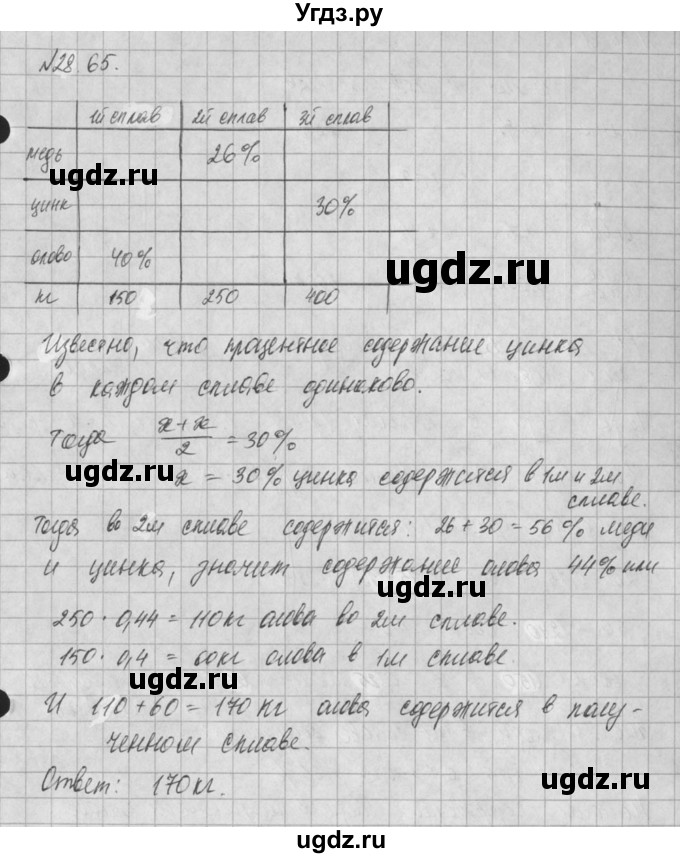 Угдз.ру
№28.65.
1й сплав 2й сплав 3й сплав
медь 26%
ugdz.ru
цинк 30%
олово 40%
ugdz.ru
кг 150 250 400
Известно, что процентное содержание цинка
в каждом сплаве одинаково.
Тогда x+x/2 = 30%
ugdz.ru
x = 30% цинка содержится в 1м и 2м
сплаве.
Тогда во 2м сплаве содержится: 26+30=56% меди
и цинка, значит содержание олова 44% или
ugdz.ru
250 · 0,44 = 110кг олова во 2м сплаве.
150 · 0,4 = 60кг олова в 1м сплаве.
ugdz.ru
И 110+60=170кг олова содержится в полу-
ченном сплаве.
ugdz.ru
Ответ: 170кг.
ugdz.ru
ugdz.ru